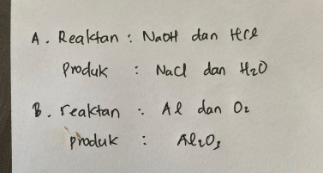 A. Reaktan : NaOH dan HCl
Produk : NaCl dan H₂O
B. reaktan : Al dan O₂
produk : Al₂O₃